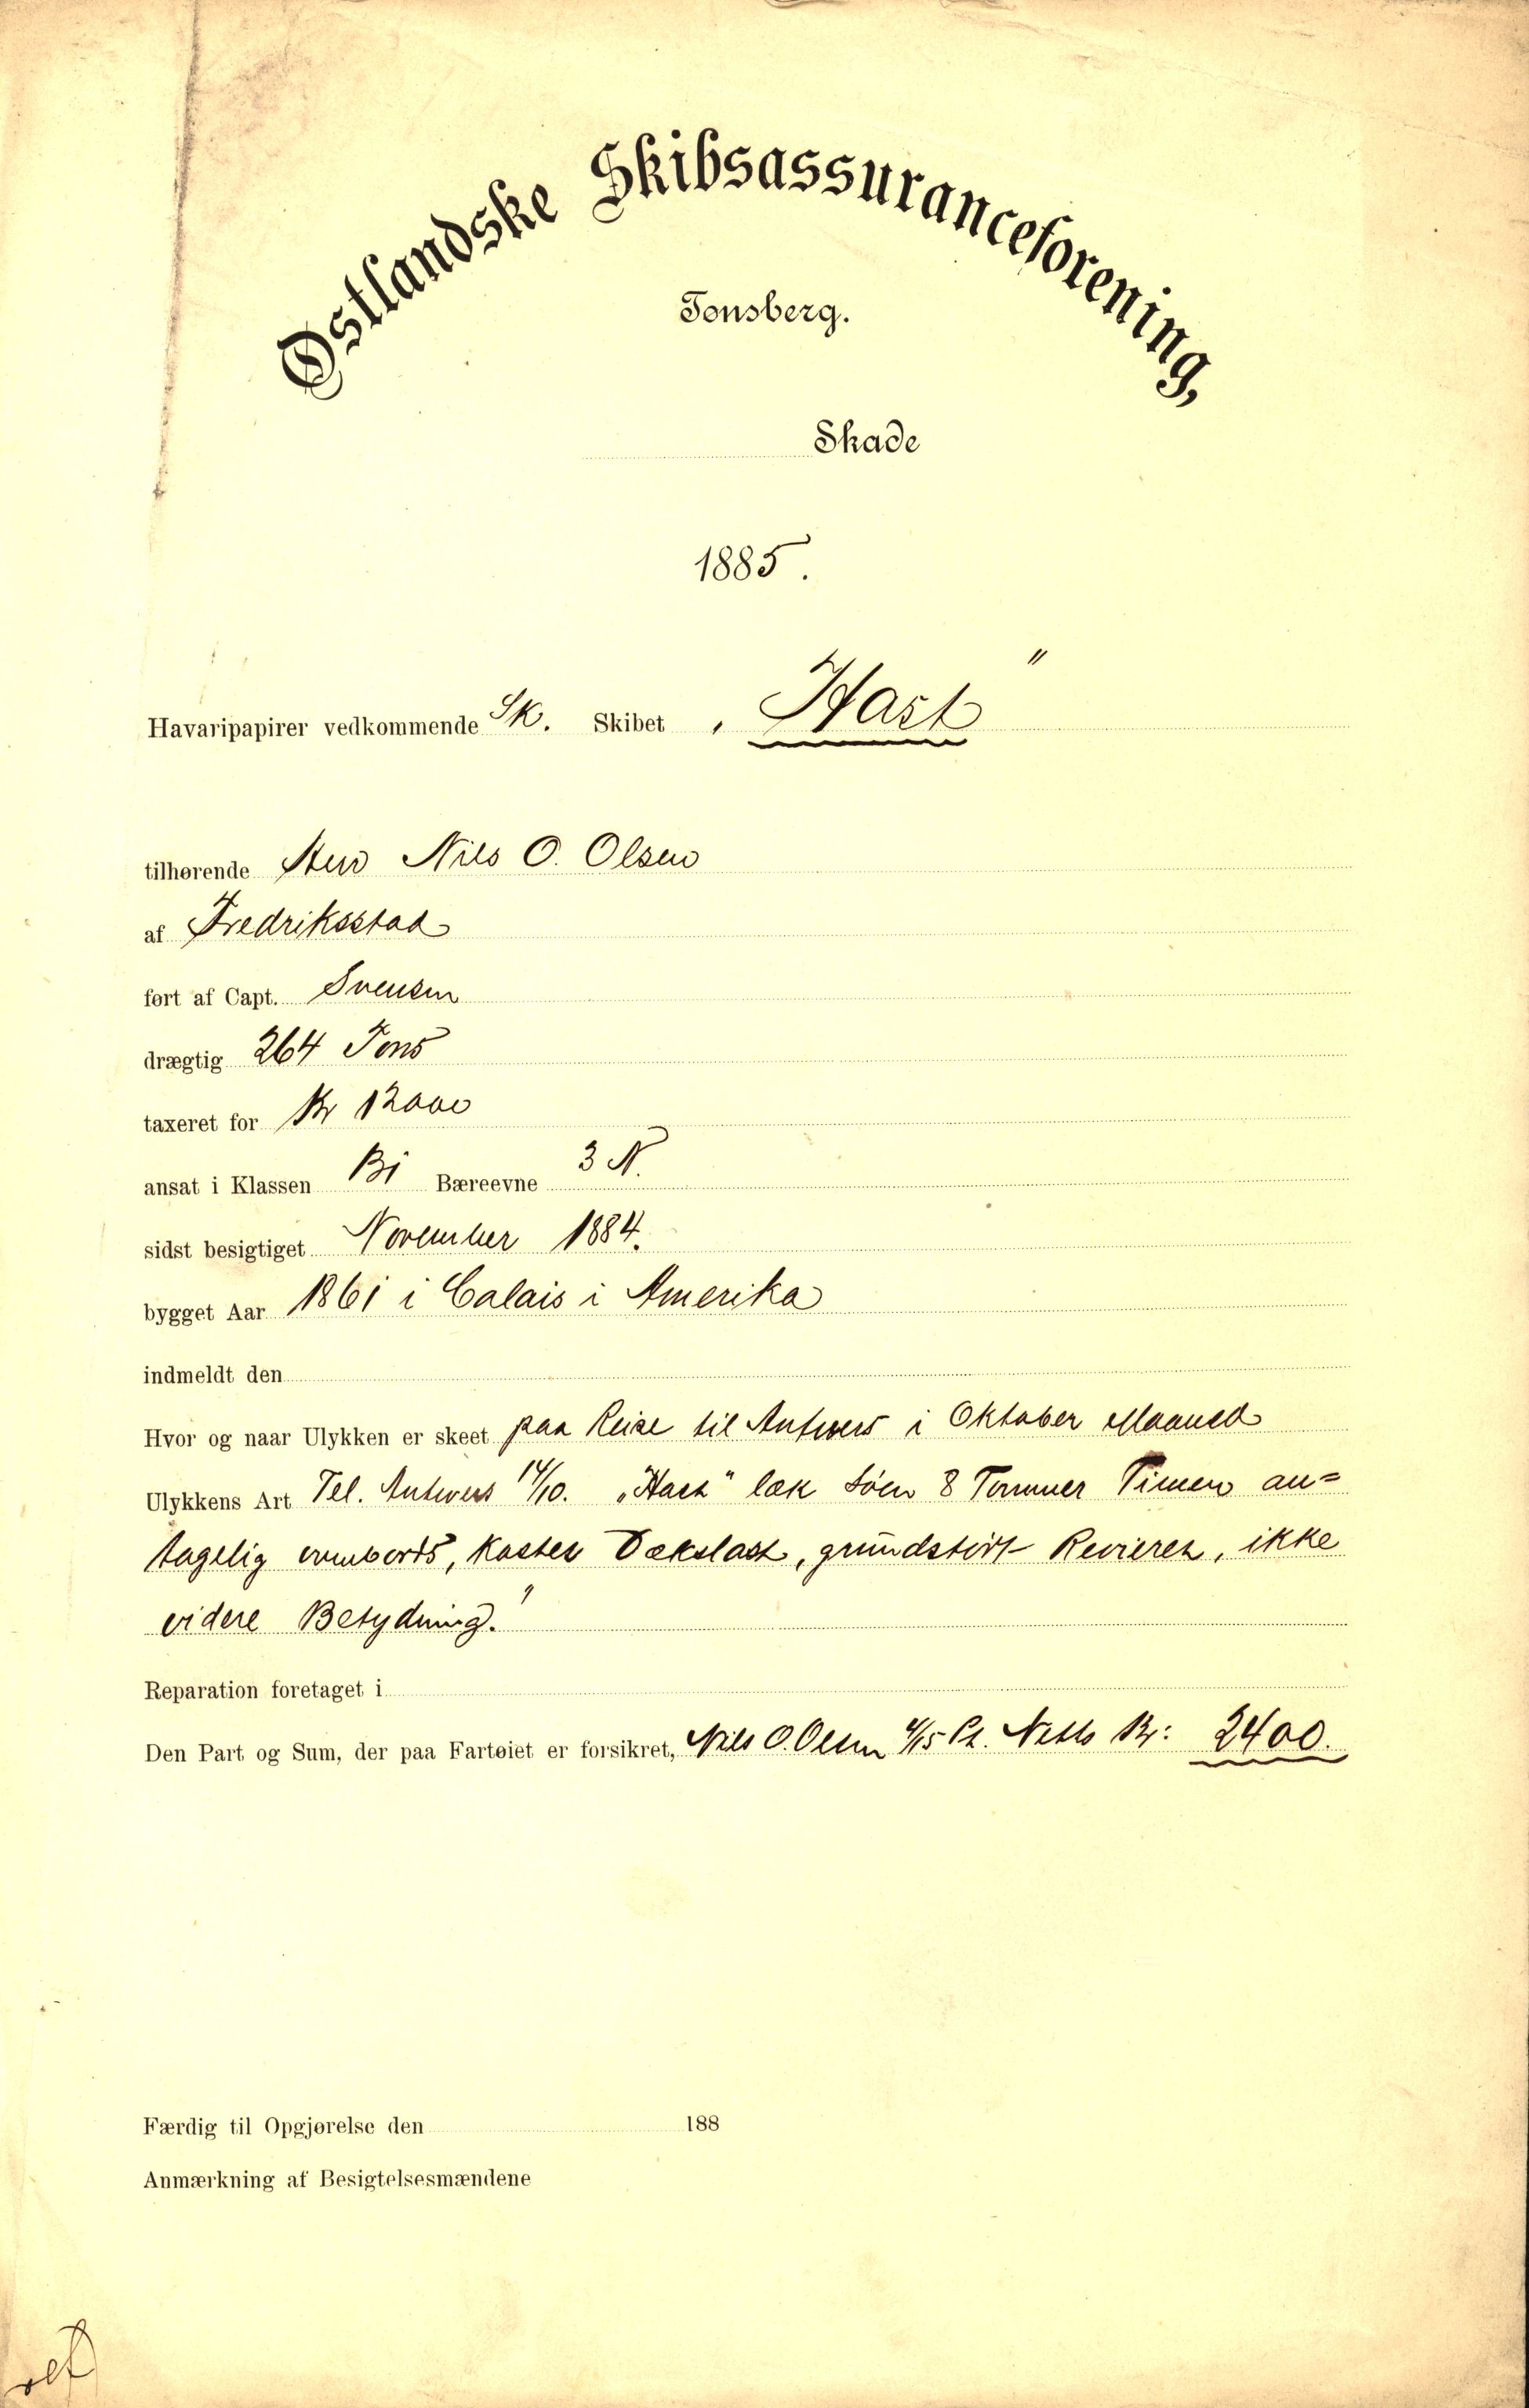 Østlandske Skibsassuranceforening,
Tønsberg.
Skade
1885.
Havaripapirer vedkommende Sk. Skibet „Hast"
tilhørende Herr Nils O. Olsen
af Fredriksstad
ført af Capt. Svensen
drægtig 264 Tons
taxeret for Kr 12000
ansat i Klassen B1 Bæreevne 3 N.
sidst besigtiget November 1884.
bygget Aar 1861 i Calais i Amerika
indmeldt den
Hvor og naar Ulykken er skeet paa Reise til Antwers i Oktober Maaned
Ulykkens Art Tel. Antwers 14/10. „Hast" læk Søen 8 Tommer Timen an=
tagelig ovenbords, kastet Dækslast, grundstødt Revieret, ikke
videre Betydning."
Reparation foretaget i
Den Part og Sum, der paa Fartøiet er forsikret, Nils O. Olsen 4/15 Pt. Netto Kr: 2400.
Færdig til Opgjørelse den 188
Anmærkning af Besigtelsesmændene